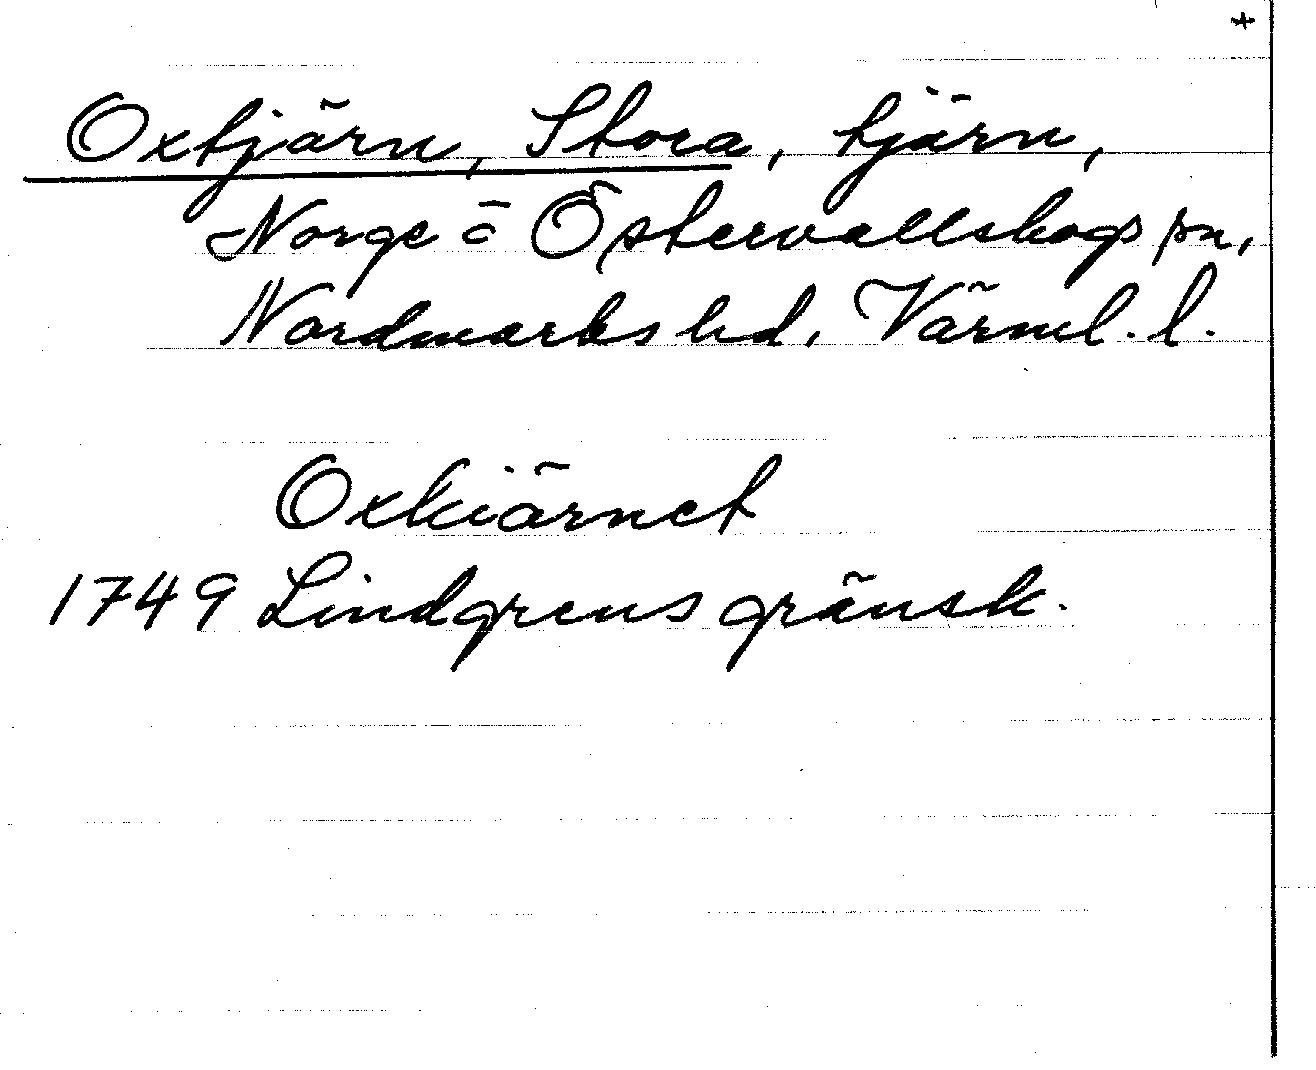 *
Oxtjärn, Stora, tjärn,
Norge o Östervallskogs sn,
Nordmarks hd, Värml. l.
Oxkiärnet
1749 Lindgrens gränsk.